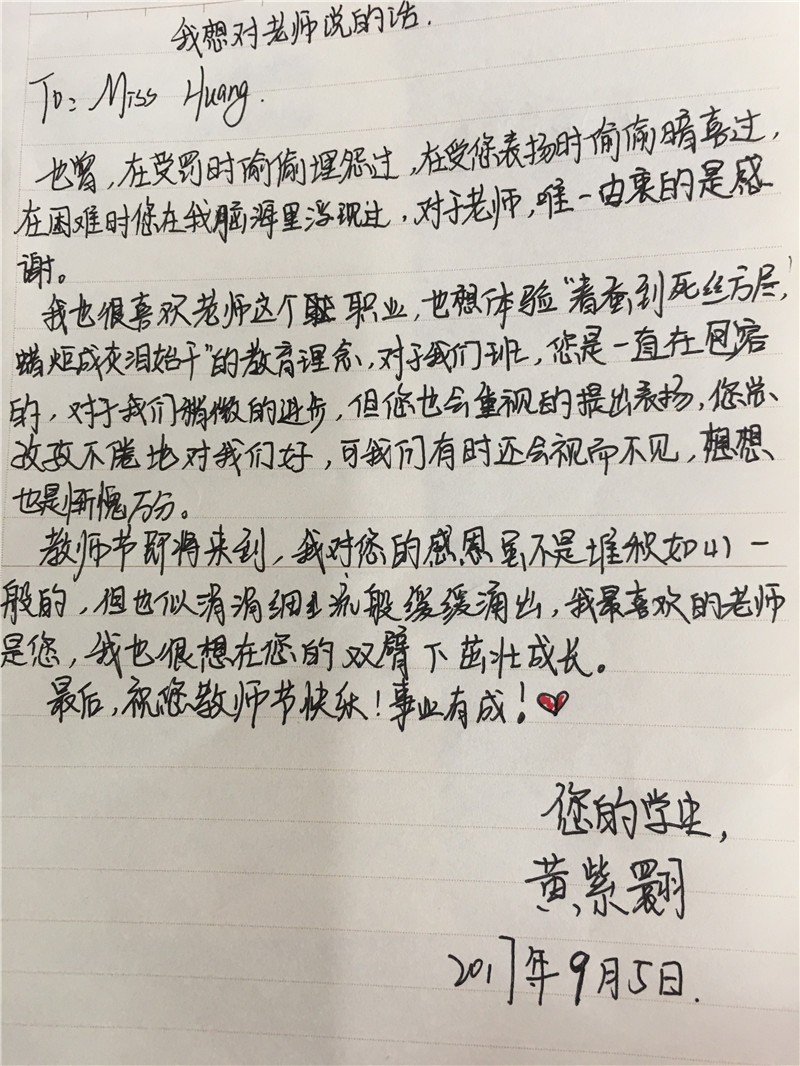 我想对老师说的话.
To: Miss Huang.
也曾,在受罚时偷偷埋怨过,在受您表扬时偷偷暗喜过,
在困难时您在我脑海里浮现过,对于老师,唯一由衷的是感
谢。
我也很喜欢老师这个职业,也想体验“春蚕到死丝方尽,
蜡炬成灰泪始干”的教育理念,对于我们班,您是一直在包容
的,对于我们稍微的进步,但您也会重视的提出表扬,您总
孜孜不倦地对我们好,可我们有时还会视而不见,想想
也是惭愧万分。
教师节即将来到,我对您的感恩虽不是堆积如山一
般的,但也似涓涓细流般缓缓涌出,我最喜欢的老师
是您,我也很想在您的双臂下茁壮成长。
最后,祝您教师节快乐!事业有成!
您的学生,
黄紫翾
2017年9月5日.